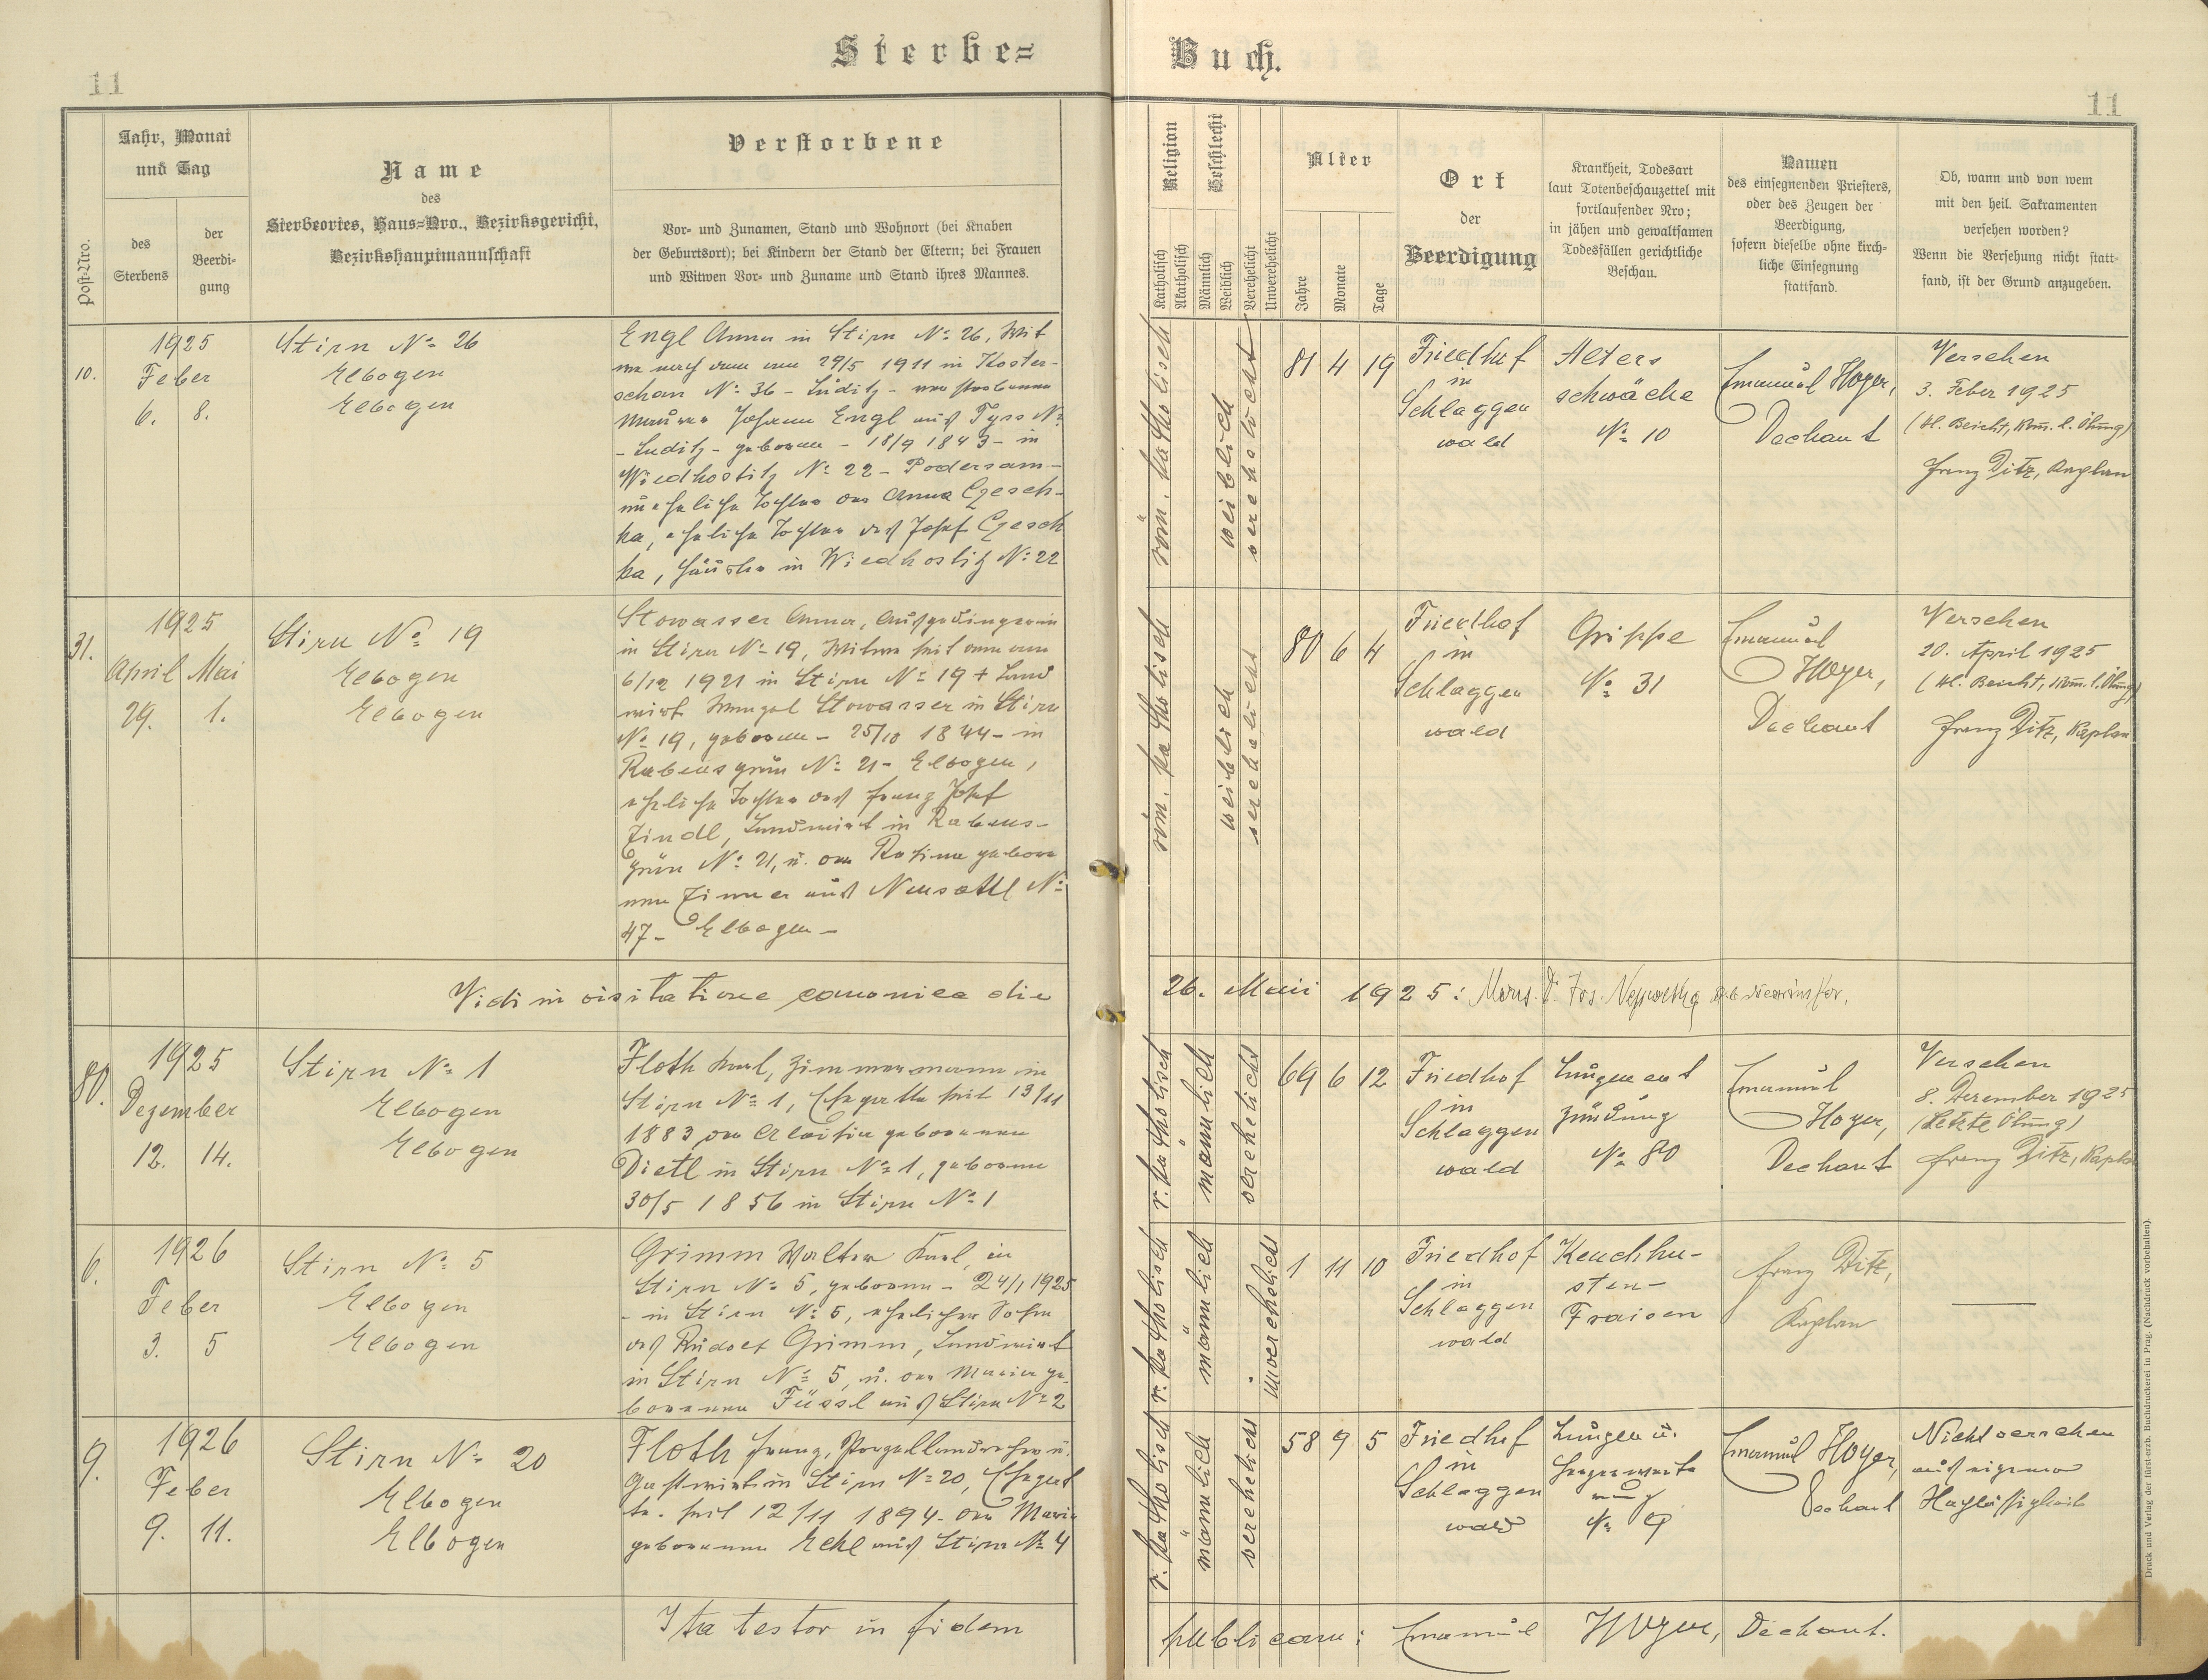 11
Sterbe=
Buch.
11
Post-Nro.
Jahr, Monat
und Tag
des
Sterbens
der
Beerdi-
gung
Name
des
Sterbeortes, Haus=Nro., Bezirksgericht,
Bezirkshauptmannschaft
Verstorbene
Vor- und Zunamen, Stand und Wohnort (bei Knaben
der Geburtsort); bei Kindern der Stand der Eltern; bei Frauen
und Witwen Vor- und Zuname und Stand ihres Mannes.
Religion
Katholisch
Akatholisch
Geschlecht
Männlich
Weiblich
Verehelicht
Unverehelicht
Alter
Jahre
Monate
Tage
Ort
der
Beerdigung
Krankheit, Todesart
laut Totenbeschauzettel mit
fortlaufender Nro;
in jähen und gewaltsamen
Todesfällen gerichtliche
Beschau.
Namen
des einsegnenden Priesters,
oder des Zeugen der
Beerdigung,
sofern dieselbe ohne kirch-
liche Einsegnung
stattfand.
Ob, wann und von wem
mit den heil. Sakramenten
versehen worden?
Wenn die Versehung nicht statt-
fand, ist der Grund anzugeben.
10.
1925
Feber
6. 8.
Stirn No 26
Elbogen
Elbogen
Engl Anna in Stirn No 26, Wit
we nach dem am 29/5 1911 in Koster-
schan No 36 - Luditz - verstorbenen
Maurer Johann Engl aus Tyss No
- Luditz - geboren - 18/9 1843 - in
Wiedhostitz No 22 - Podersam -
uneheliche Tochter der Anna Czesch-
ka, eheliche Tochter des Josef Czesch
ka, Häusler in Wiedhostitz No 22
röm. katholisch
weiblich
verehelicht
81 4 19
Friedhof
in
Schlaggen
wald
Alters
schwäche
No 10
Emanuel Hoyer,
Dechant
Versehen
3. Feber 1925
(hl. Beicht, Kom. l. Ölung)
Franz Ditz, Kaplan
31.
1925
April Mai
29. 1.
Stirn No 19
Elbogen
Elbogen
Stowasser Anna, Ausgedingerin
in Stirn No 19, Witwe seit dem am
6/12 1921 in Stirn No 19 + Land
wirt Wenzel Stowasser in Stirn
No 19, geboren - 25/10 1844 - in
Rabensgrün No 21 - Elbogen,
eheliche Tochter des Franz Josef
Zindl, Landwirt in Rabens-
grün No 21, u. der Rosina gebore
nen Zinner aus Neusattl No
47 - Elbogen -
röm. katholisch
weiblich
verehelicht
80 6 4
Friedhof
in
Schlaggen
wald
Grippe
No 31
Emanuel
Hoyer,
Dechant
Versehen
20. April 1925
(hl. Beicht, Kom. l. Ölung)
Franz Ditz, Kaplan
Vidi in visitatione canonica die
26. Maii 1925: Mons. Dr. Jos.
80.
1925
Dezember
12. 14.
Stirn No 1
Elbogen
Elbogen
Floth Karl, Zimmermann in
Stirn No 1, Ehegatte seit 13/11
1883 der Aloisia geborenen
Dietl in Stirn No 1, geboren
30/5 1856 in Stirn No 1
r. katholisch
männlich
verehelicht
69 6 12
Friedhof
in
Schlaggen
wald
Lungenent
zündung
No 80
Emanuel
Hoyer,
Dechant
Versehen
8. Dezember 1925
(Letzte Ölung)
Franz Ditz, Kaplan
6.
1926
Feber
3. 5
Stirn No 5
Elbogen
Elbogen
Grimm Walter Karl, in
Stirn No 5, geboren - 24/1 1925
- in Stirn No 5, ehelicher Sohn
des Rudolf Grimm, Landwirt
in Stirn No 5, u. der Maria ge-
borenen Füssl aus Stirn No 2
r. katholisch
männlich
unverehelicht
1 11 10
Friedhof
in
Schlaggen
wald
Keuchhu-
sten-
Fraisen
Franz Ditz,
Kaplan
9.
1926
Feber
9. 11.
Stirn No 20
Elbogen
Elbogen
Floth Franz, Porzellandreher u.
Gastwirt in Stirn No 20, Ehegat
te seit 12/11 1894 der Maria
geborenen Eckl aus Stirn No 4
r. katholisch
männlich
verehelicht
58 9 5
Friedhof
in
Schlaggen
wald
Lungen u.
No 9
Emanuel Hoyer,
Dechant
Nicht versehen
aus eigener
Nachlässigkeit
Ita testor in fidem
publicam: Emanuel Hoyer, Dechant.
Druck und Verlag der fürst-erzb. Buchdruckerei in Prag. (Nachdruck vorbehalten).